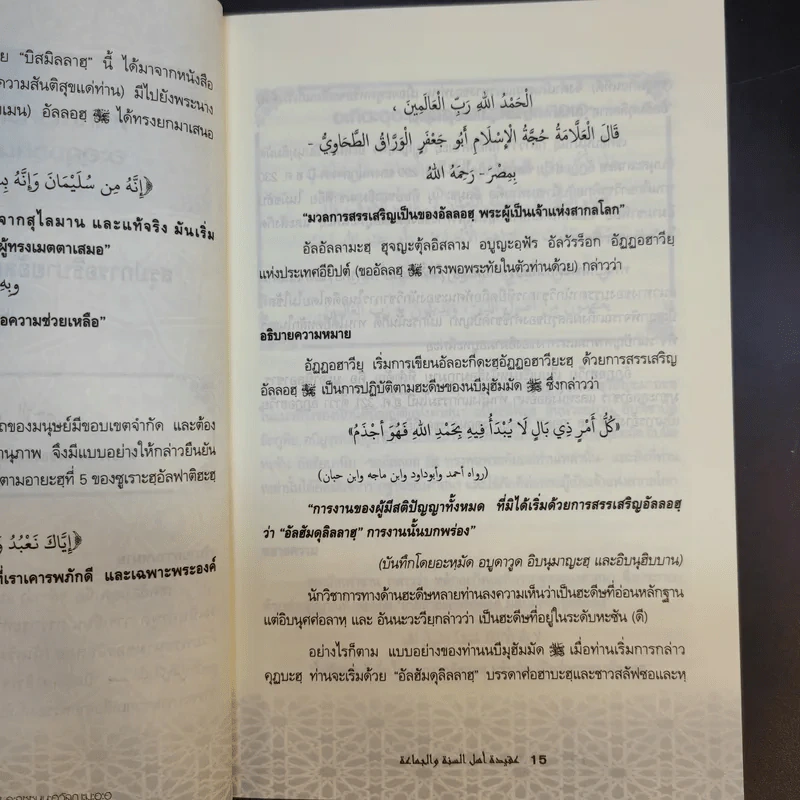 ย "บิสมิลลาฮฺ" นี้ ได้มาจากหนังสือ
ความสันติสุขแด่ท่าน) มีไปยังพระนาง
เมน) อัลลอฮฺ ﷻ ได้ทรงยกมาเสนอ
﴿إِنَّهُ مِن سُلَيْمَانَ وَإِنَّهُ
จากสุไลมาน และแท้จริง มันเริ่ม
ผู้ทรงเมตตาเสมอ"
อความช่วยเหลือ"
ถของมนุษย์มีขอบเขตจำกัด และต้อง
านุภาพ จึงมีแบบอย่างให้กล่าวยืนยัน
ตามอายะฮฺที่ 5 ของซูเราะฮฺอัลฟาติฮะฮฺ
﴿إِيَّاكَ نَعْبُدُ
ที่เราเคารพภักดี และเฉพาะพระองค์
الْحَمْدُ اللهِ رَبِّ الْعَالَمِينَ ،
قَالَ الْعَلَّامَةُ حُجَّةُ الْإِسْلَامِ أَبُو جَعْفَرٍ الْوَرَّاقُ الطَّحَاوِيُّ -
بِمِصْرَ- رَحِمَهُ اللهُ
"มวลการสรรเสริญเป็นของอัลลอฮฺ พระผู้เป็นเจ้าแห่งสากลโลก"
อัลอัลลามะฮฺ ฮุจญะตุ้ลอิสลาม อบูญะอฺฟัร อัลวัรร็อก อัฏฏอฮาวียฺ
แห่งประเทศอียิปต์ (ขออัลลฮฺ ﷻ ทรงพอพระทัยในตัวท่านด้วย) กล่าวว่า
อธิบายความหมาย
อัฏฏอฮาวียฺ เริ่มการเขียนอัลอะกีดะฮฺอัฏฏอฮาวียะฮฺ ด้วยการสรรเสริญ
อัลลอฮฺ ﷻ เป็นการปฏิบัติตามฮะดีษของนบีมุฮัมมัด ﷺ ซึ่งกล่าวว่า
«كُلُّ أَمْرٍ ذِي بَالٍ لَا يُبْدَأُ فِيهِ بِحَمْدِ اللهِ فَهُوَ أَجْذَمُ»
(رواه أحمد وأبوداود وابن ماجه وابن حبان)
"การงานของผู้มีสติปัญญาทั้งหมด ที่มิได้เริ่มด้วยการสรรเสริญอัลลอฮฺ
ว่า "อัลฮัมดุลิลลาฮฺ" การงานนั้นบกพร่อง"
(บันทึกโดยอะหฺมัด อบูดาวูด อิบนุมาญะฮฺ และอิบนุฮิบบาน)
นักวิชาการทางด้านฮะดีษหลายท่านลงความเห็นว่าเป็นฮะดีษที่อ่อนหลักฐาน
แต่อิบนุศศ่อลาหฺ และ อันนะวะวียฺกล่าวว่า เป็นฮะดีษที่อยู่ในระดับหะซัน (ดี)
อย่างไรก็ตาม แบบอย่างของท่านนบีมุฮัมมัด ﷺ เมื่อท่านเริ่มการกล่าว
คุฏบะฮฺ ท่านจะเริ่มด้วย "อัลฮัมดุลิลลาฮฺ" บรรดาศ่อฮาบะฮฺและชาวสลัฟซอและหฺ
عقيدة أهل السنة والجماعة 15